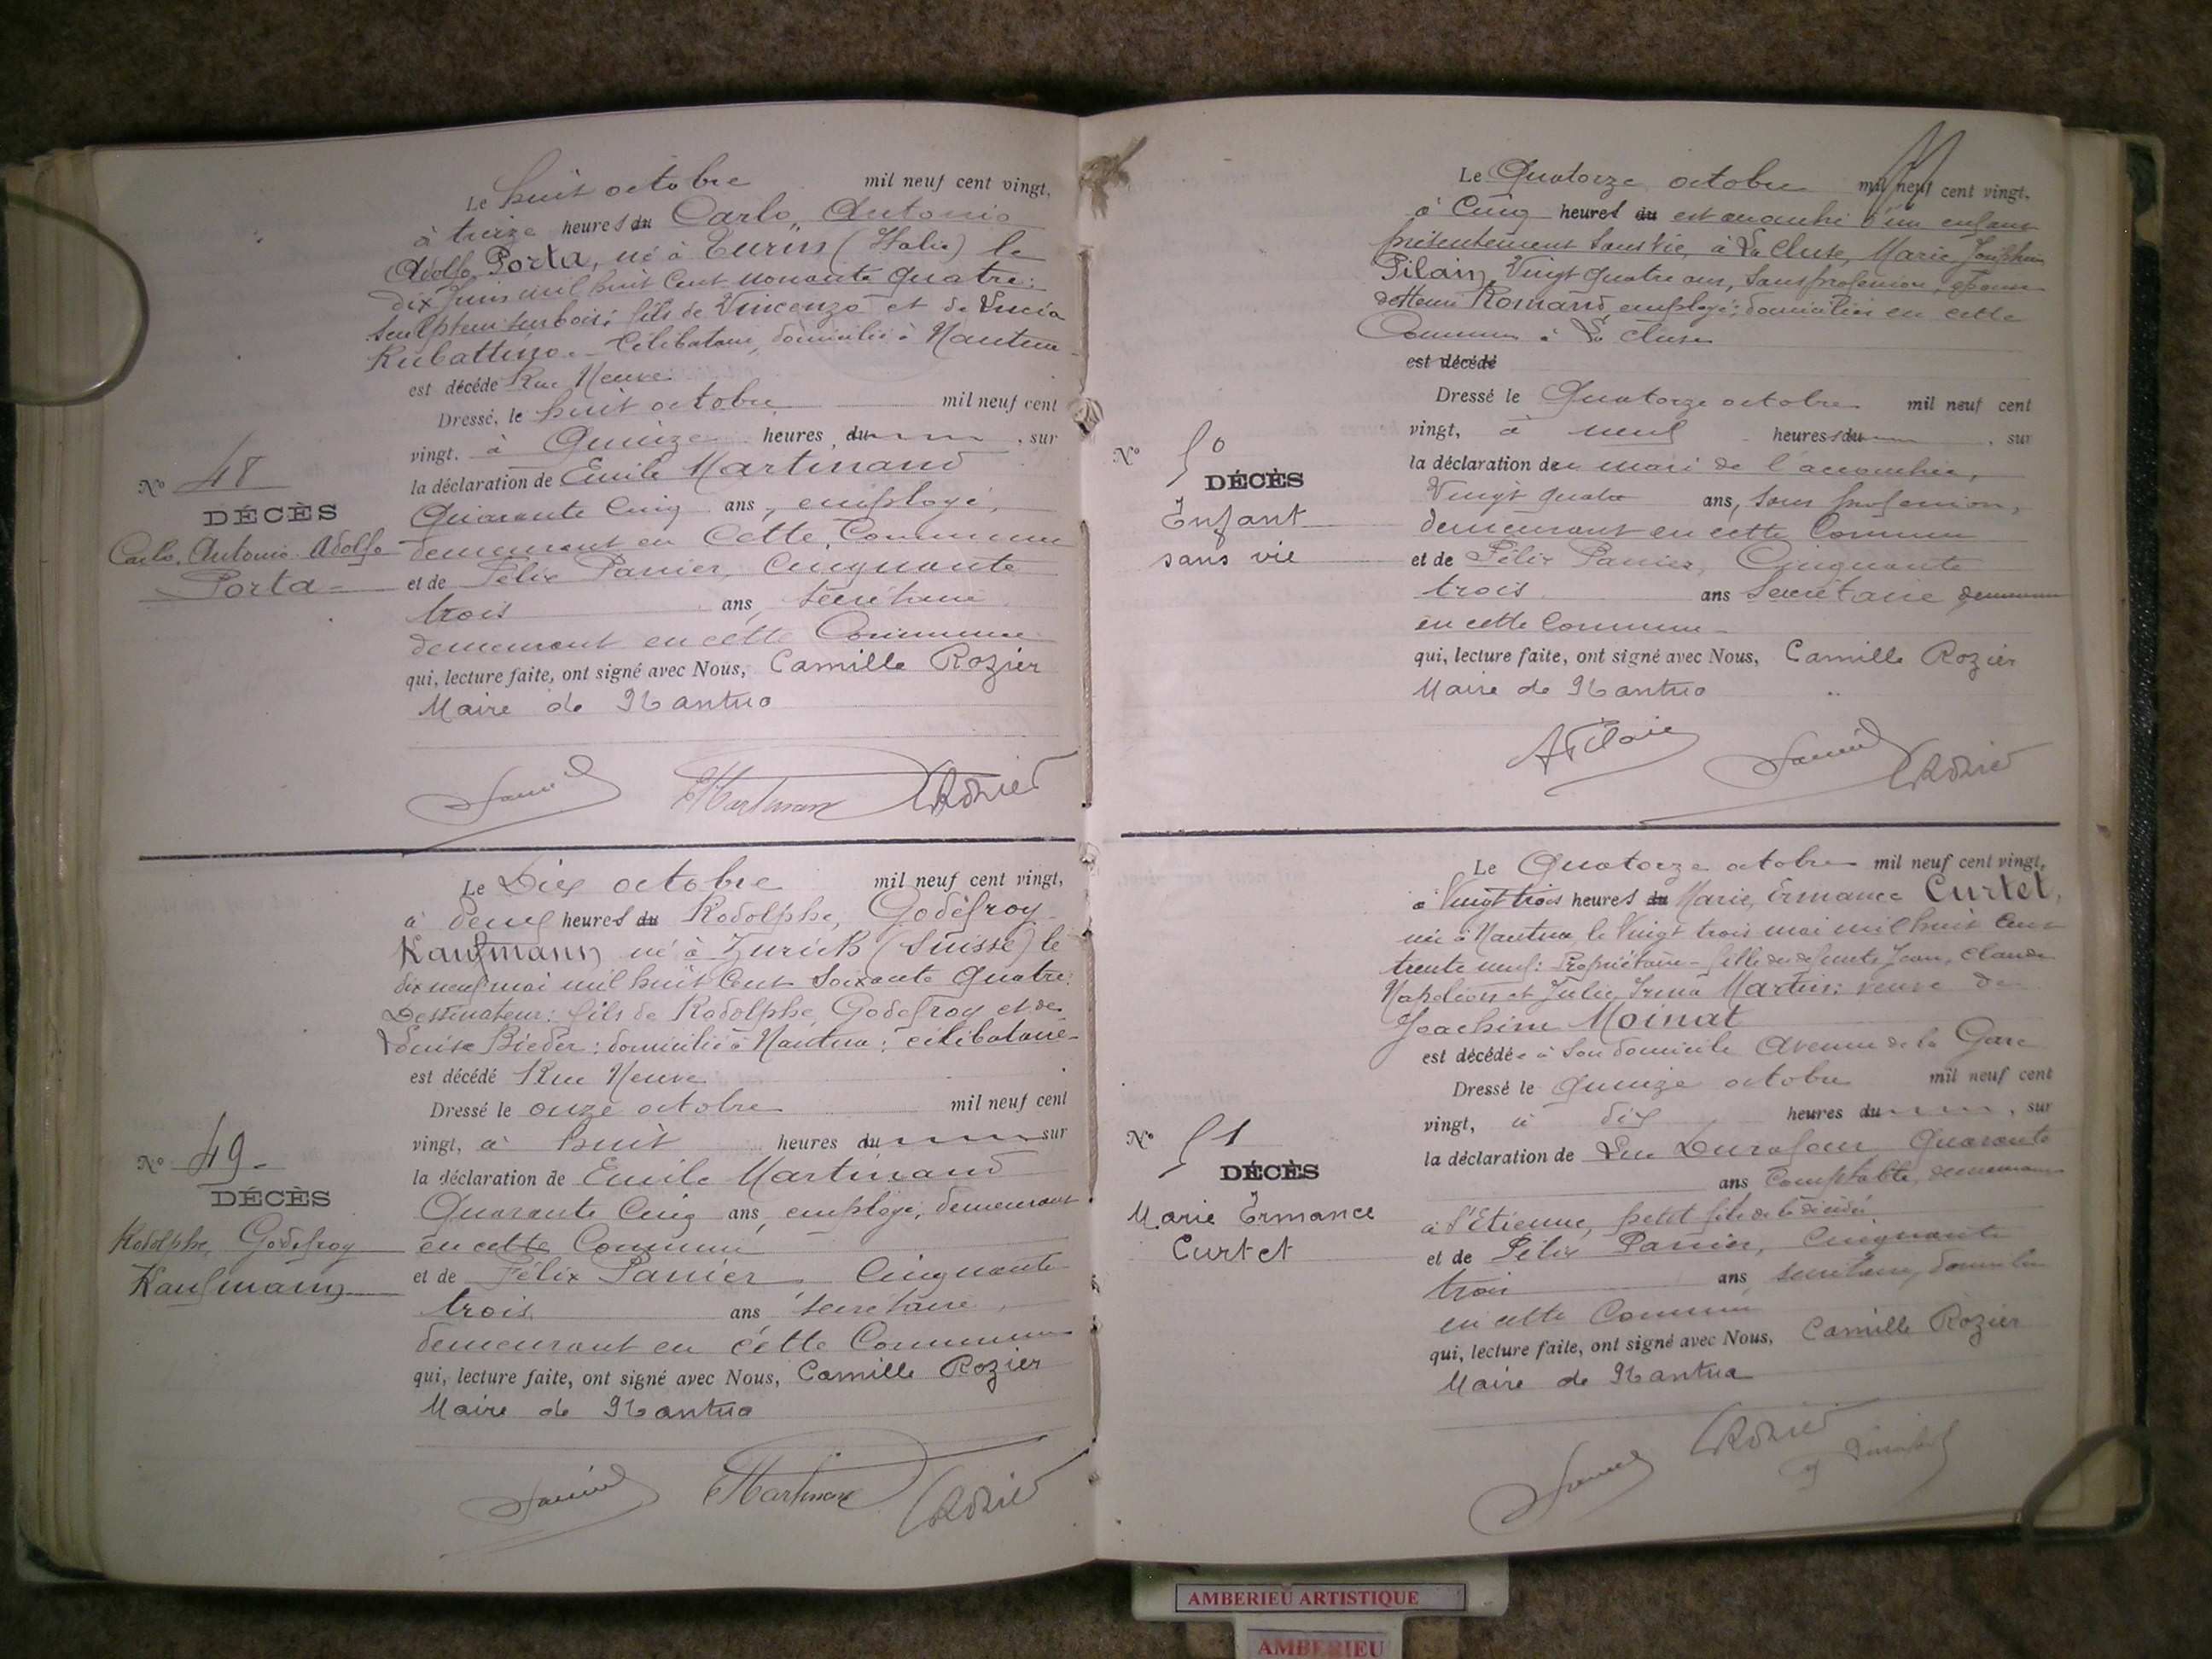 Le huit octobre mil neuf cent vingt,
à treize heures du Carlo, Antonio
Adolfo Porta, né à Turin (Italie) le
dix juin mil huit cent nonante quatre:
sculpteur sur bois: fils de Vincenzo et de Lucia
Rubattino. Célibataire, domicilié à Nantua
est décédé Rue Neuve
Dressé, le huit octobre mil neuf cent
vingt. à Quinze heures du , sur
la déclaration de Emile Martinand
Quarante Cinq ans, employé,
demeurant en Cette Commune
et de Félix Panier, Cinquante
trois ans, secrétaire
demeurant en cette Commune
qui, lecture faite, ont signé avec Nous, Camille Rozier
Maire de Nantua
No 48
DÉCÈS
Carlo, Antonio Adolfo
Porta
Martinand CRozier
Le Dix octobre mil neuf cent vingt,
à deux heures du Rodolphe, Godefroy
Kaufmann né à Zurich (Suisse) le
dix neuf mai mil huit Cent Soixante Quatre:
Dessinateur: fils de Rodolphe, Godefroy et de
Louise Bieder: domicilié à Nantua: célibataire
est décédé Rue Neuve
Dressé le onze octobre mil neuf cent
vingt, à huit heures du sur
la déclaration de Emile Martinand
Quarante Cinq ans, employé, demeurant
en cette Commune
et de Félix Panier, Cinquante
trois ans, secrétaire,
demeurant en cette Commune
qui, lecture faite, ont signé avec Nous, Camille Rozier
Maire de Nantua
No 49
DÉCÈS
Rodolphe, Godefroy
Kaufmann
Martinand CRozier
Le Quatorze octobre mil neuf cent vingt.
à Cinq heures du est accouchée d'un enfant
présentement sans vie, à La Cluse, Marie Josephine
Pilain, Vingt quatre ans, sans profession, épouse
de Henri Romand, employé; domiciliés en cette
Commune à La Cluse
est décédé
Dressé le Quatorze octobre mil neuf cent
vingt, à neuf heures du , sur
la déclaration du mari de l'accouchée,
Vingt quatre ans, sans profession,
demeurant en cette Commune
et de Félix Panier, Cinquante
trois ans Secrétaire demeurant
en cette Commune
qui, lecture faite, ont signé avec Nous, Camille Rozier
Maire de Nantua
No 50
DÉCÈS
Enfant
sans vie
CRozier
Le Quatorze octobre mil neuf cent vingt,
à Vingt trois heures du Marie, Ermance Curtet,
née à Nantua, le Vingt trois mai mil huit Cent
trente neuf: Propriétaire - fille de defunts Jean, Claude
Napoléon et Julie, Irma Martin: veuve de
Joachim Moinat
est décédée à son domicile Avenue de la Gare
Dressé le Quinze octobre mil neuf cent
vingt, à dix heures du , sur
la déclaration de Luc Durafour Quarante
ans Comptable, demeurant
à St Etienne, petit fils de la décédée
et de Félix Panier, Cinquante
trois ans secrétaire,
en cette Commune
qui, lecture faite, ont signé avec Nous, Camille Rozier
Maire de Nantua
No 51
DÉCÈS
Marie Ermance
Curtet
CRozier
AMBERIEU ARTISTIQUE
AMBERIEU